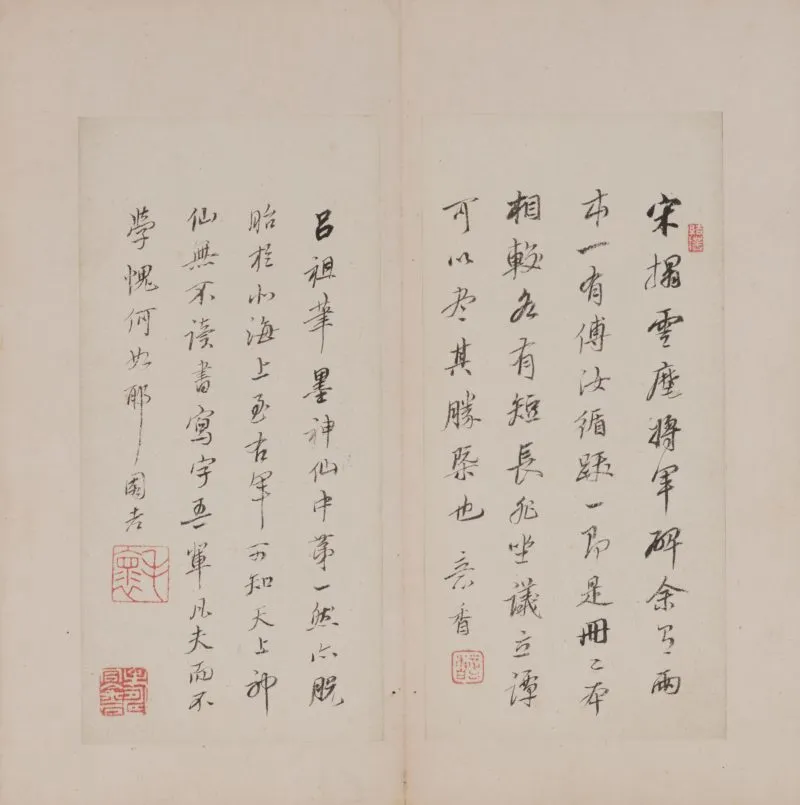 宋搨雲麾將軍碑余有兩
本一有傅汝循跋一即是冊二本
相較各有短長非坐議立譚
可以尽其勝槩也 意香
呂祖筆墨神仙中第一然亦脫
胎於北海上至右軍可知天上神
仙無不讀書寫字吾輩凡夫而不
學愧何如耶 國